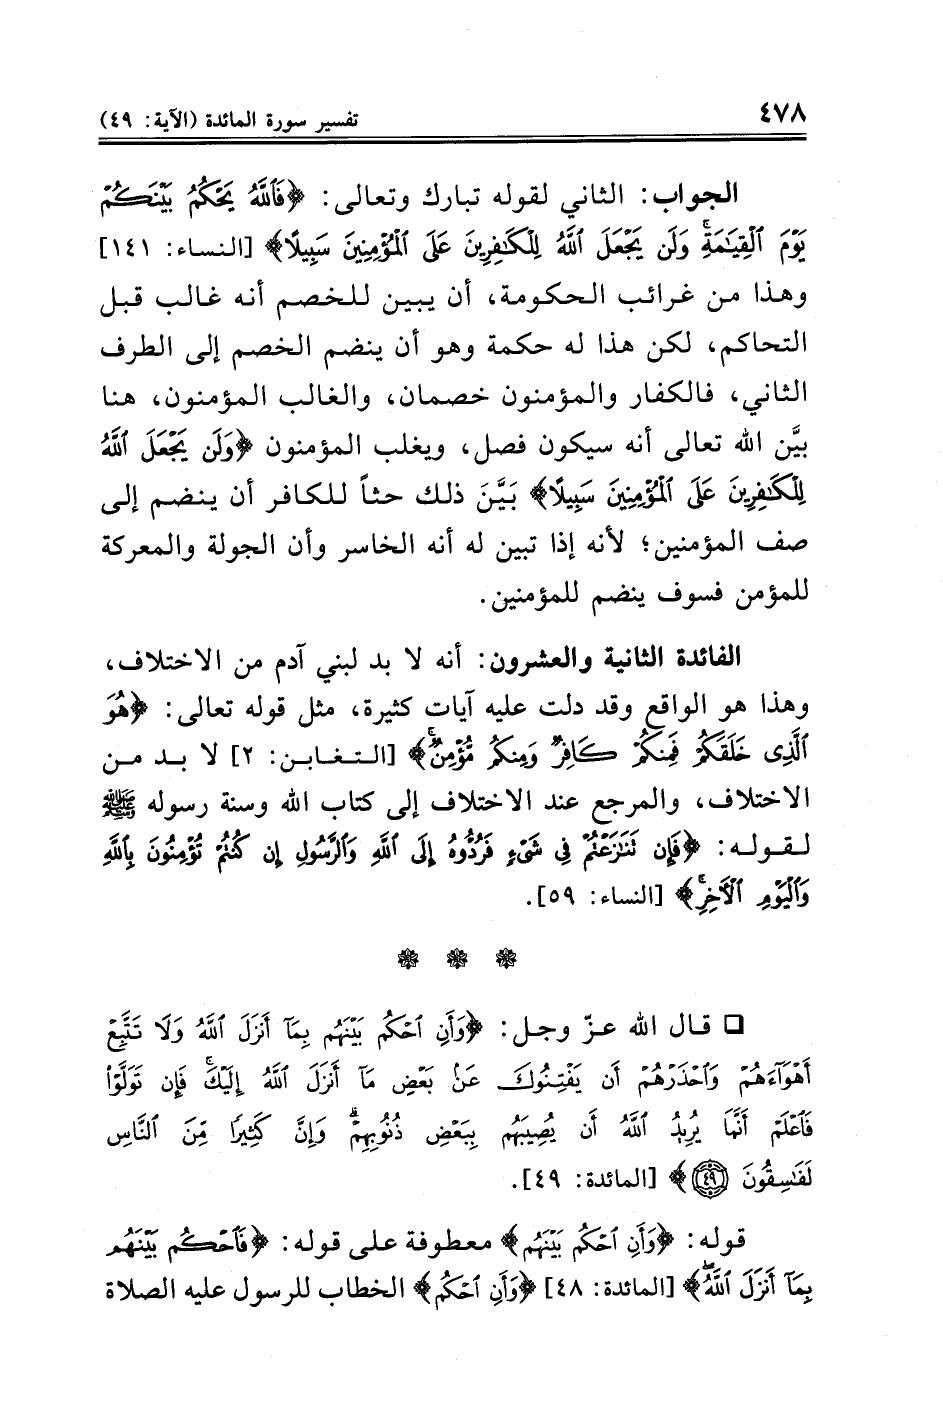 ٤٧٨
تفسير سورة المائدة (الآية: ٤٩)
الجواب: الثاني لقوله تبارك وتعالى: ﴿فَٱللَّهُ يَحْكُمُ بَيْنَكُمْ
يَوْمَ ٱلْقِيَٰمَةِۚ وَلَن يَجْعَلَ ٱللَّهُ لِلْكَٰفِرِينَ عَلَى ٱلْمُؤْمِنِينَ سَبِيلًا﴾ [النساء: ١٤١]
وهذا من غرائب الحكومة، أن يبين للخصم أنه غالب قبل
التحاكم، لكن هذا له حكمة وهو أن ينضم الخصم إلى الطرف
الثاني، فالكفار والمؤمنون خصمان، والغالب المؤمنون، هنا
بيَّن الله تعالى أنه سيكون فصل، ويغلب المؤمنون ﴿وَلَن يَجْعَلَ ٱللَّهُ
لِلْكَٰفِرِينَ عَلَى ٱلْمُؤْمِنِينَ سَبِيلًا﴾ بَيَّنَ ذلك حثاً للكافر أن ينضم إلى
صف المؤمنين؛ لأنه إذا تبين له أنه الخاسر وأن الجولة والمعركة
للمؤمن فسوف ينضم للمؤمنين.
الفائدة الثانية والعشرون: أنه لا بد لبني آدم من الاختلاف،
وهذا هو الواقع وقد دلت عليه آيات كثيرة، مثل قوله تعالى: ﴿هُوَ
ٱلَّذِى خَلَقَكُمْ فَمِنكُمْ كَافِرٌ وَمِنكُم مُّؤْمِنٌۚ﴾ [التغابن: ٢] لا بد من
الاختلاف، والمرجع عند الاختلاف إلى كتاب الله وسنة رسوله ﷺ
لقوله: ﴿فَإِن تَنَٰزَعْتُمْ فِى شَىْءٍ فَرُدُّوهُ إِلَى ٱللَّهِ وَٱلرَّسُولِ إِن كُنتُمْ تُؤْمِنُونَ بِٱللَّهِ
وَٱلْيَوْمِ ٱلْأَخِرِۚ﴾ [النساء: ٥٩].
❁ ❁ ❁
❑ قال الله عزّ وجل: ﴿وَأَنِ ٱحْكُم بَيْنَهُم بِمَآ أَنزَلَ ٱللَّهُ وَلَا تَتَّبِعْ
أَهْوَآءَهُمْ وَٱحْذَرْهُمْ أَن يَفْتِنُوكَ عَنۢ بَعْضِ مَآ أَنزَلَ ٱللَّهُ إِلَيْكَۖ فَإِن تَوَلَّوْا۟
فَٱعْلَمْ أَنَّمَا يُرِيدُ ٱللَّهُ أَن يُصِيبَهُم بِبَعْضِ ذُنُوبِهِمْۗ وَإِنَّ كَثِيرًا مِّنَ ٱلنَّاسِ
لَفَٰسِقُونَ ٤٩﴾ [المائدة: ٤٩].
قوله: ﴿وَأَنِ ٱحْكُم بَيْنَهُم﴾ معطوفة على قوله: ﴿فَٱحْكُم بَيْنَهُم
بِمَآ أَنزَلَ ٱللَّهُۖ﴾ [المائدة: ٤٨] ﴿وَأَنِ ٱحْكُم﴾ الخطاب للرسول عليه الصلاة